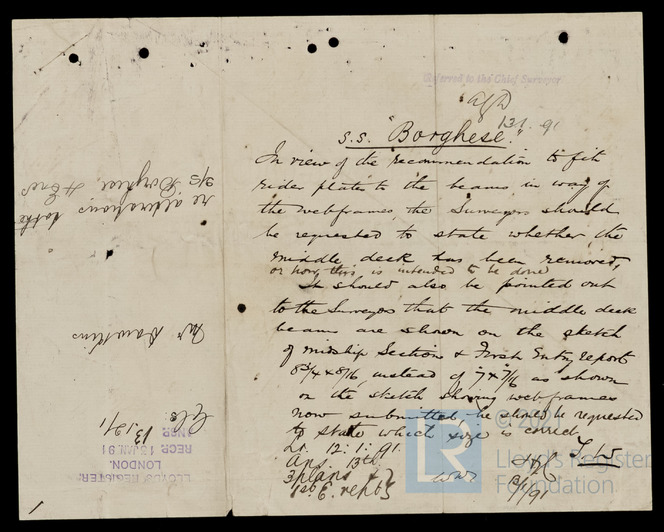 Referred to the Chief Surveyor
13.1.91
S.S. "Borghese."
In view of the recommendation to fit
rider plates to the beams in way of
the webframes, the Surveyors should
be requested to state whether the
middle deck has been removed,
or how this is intended to be done
It should also be pointed out
to the Surveyors that the middle deck
beams are shown on the sketch
of midship Section & First Entry report
8 3/4 x 8/16, instead of 7 x 7/16 as shown
on the sketch showing webframes
now submitted, he should be requested
to state which size is correct
Lr. 12.1.91.
Ans. 13th.
3 plans &
1st E. repts
13/1/91
re alterations to the
S/S Borghese & Ones
Mr Dawkins
13.1.91
LLOYD'S REGISTER
LONDON.
RECD. 13 JAN. 91
1
© 20
LR
Lloyd's Register
Foundation